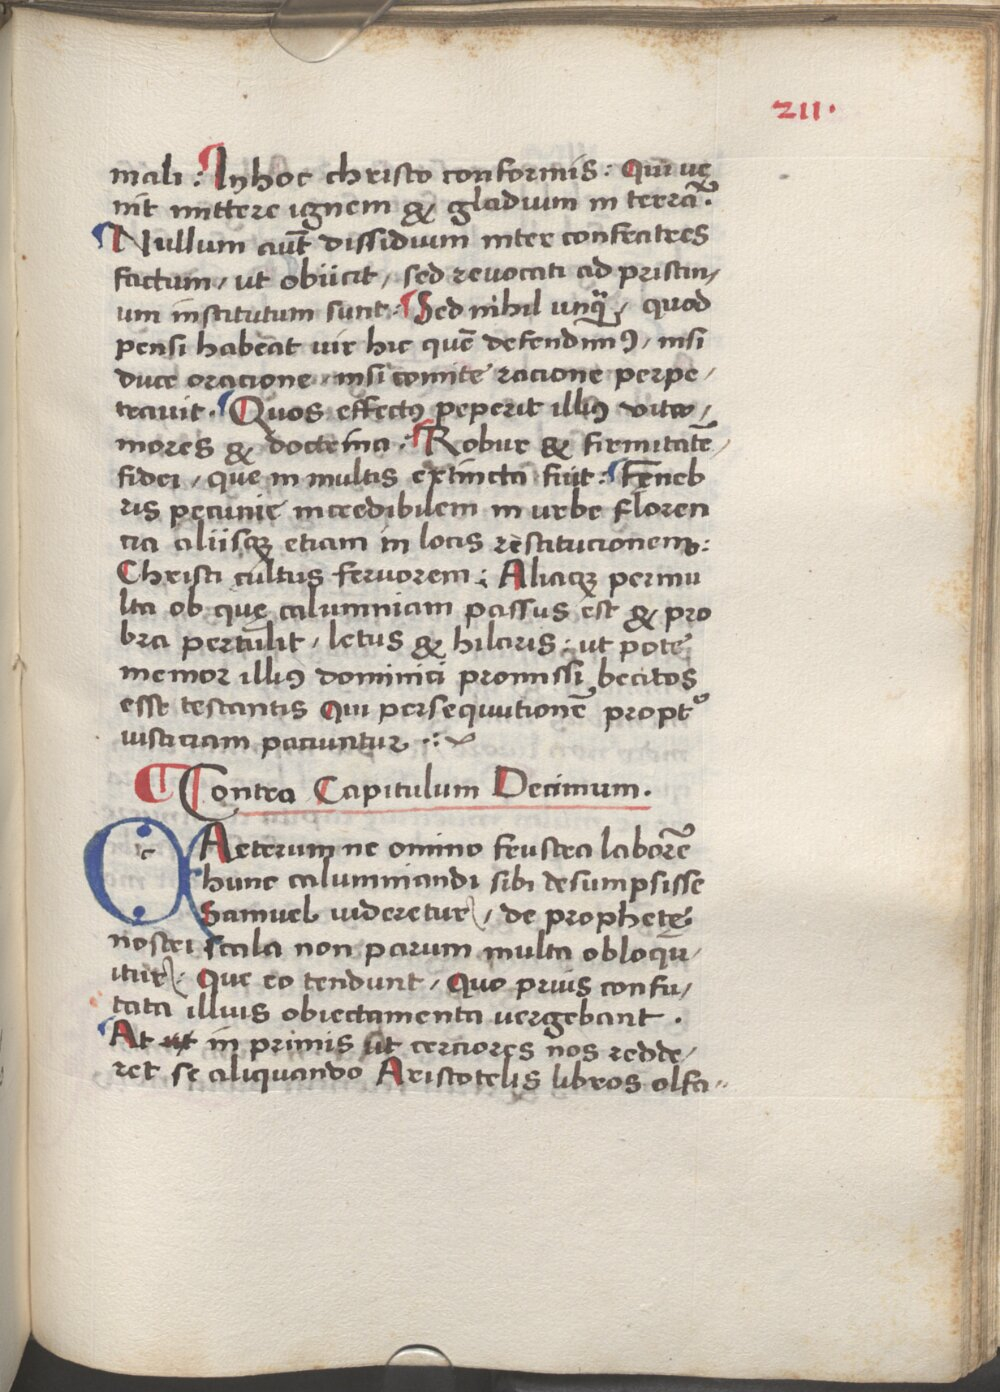 211.
mali: In hoc christo conformis: Qui ve
nit mittere ignem & gladium in terrā.
Nullum aūt dissidium inter confratres
factum, ut obiicit, sed revocati ad pristin,
um institutum sunt: Sed nihil unq̄, quod
pensi habeat vir hic quē defendimꝰ, nisi
duce oracione, nisi comite racione perpe,
travit. Quos effectꝰ peperit illiꝰ vite,
mores & doctrina: Robur & firmitatē,
fidei, que in multis extincta fuit: Feneb
ris pecunię incredibilem in urbe Floren
cia aliisqꝫ etiam in locis restitucionem:
Christi cultus fervorem: Aliaqꝫ permu
lta ob quę calumniam passus est & pro
bra pertulit, letus & hilaris: ut pote
memor illiꝰ dominici promissi beatos
esse testantis Qui persequutionē propt
iusticiam paciuntur
Contra Capitulum Decimum.
CAeterum ne omino frustra laborē
hunc calumniandi sibi desumpsisse
Samuel videretur, de prophetę
nostri scala non parum multa obloqu,
itur, Que eo tendunt, Quo prius confu,
tata illius obiectamenta vergebant.
At ut in primis ut cerciores nos redde,
ret se aliquando Aristotelis libros olfa,